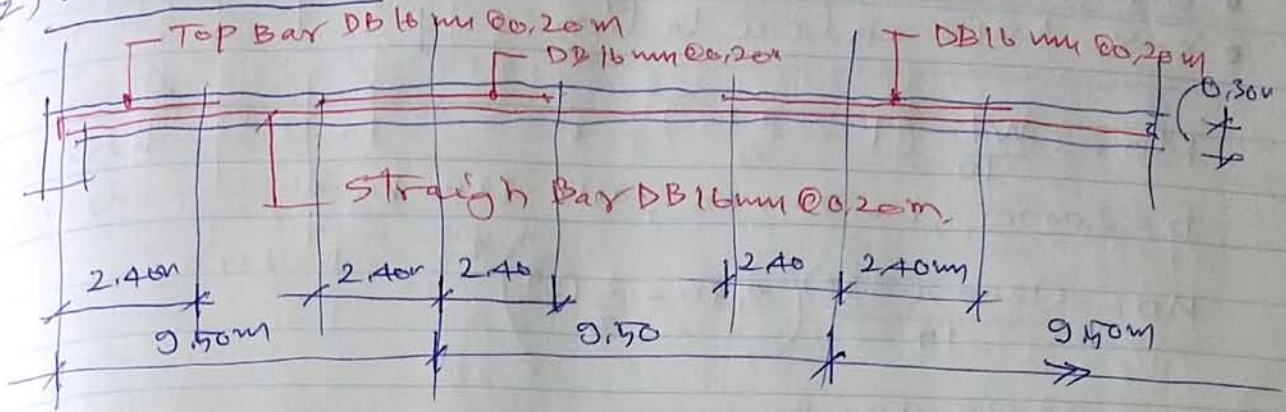 2)
Top Bar DB 16 mm @0,20m
DB 16 mm @0,20m
DB16 mm @0,20m
0,30m
Straigh Bar DB16mm @0,20m.
2.40m
2.40m
2.40
2.40
2.40m
9.50m
9,50
9,50m